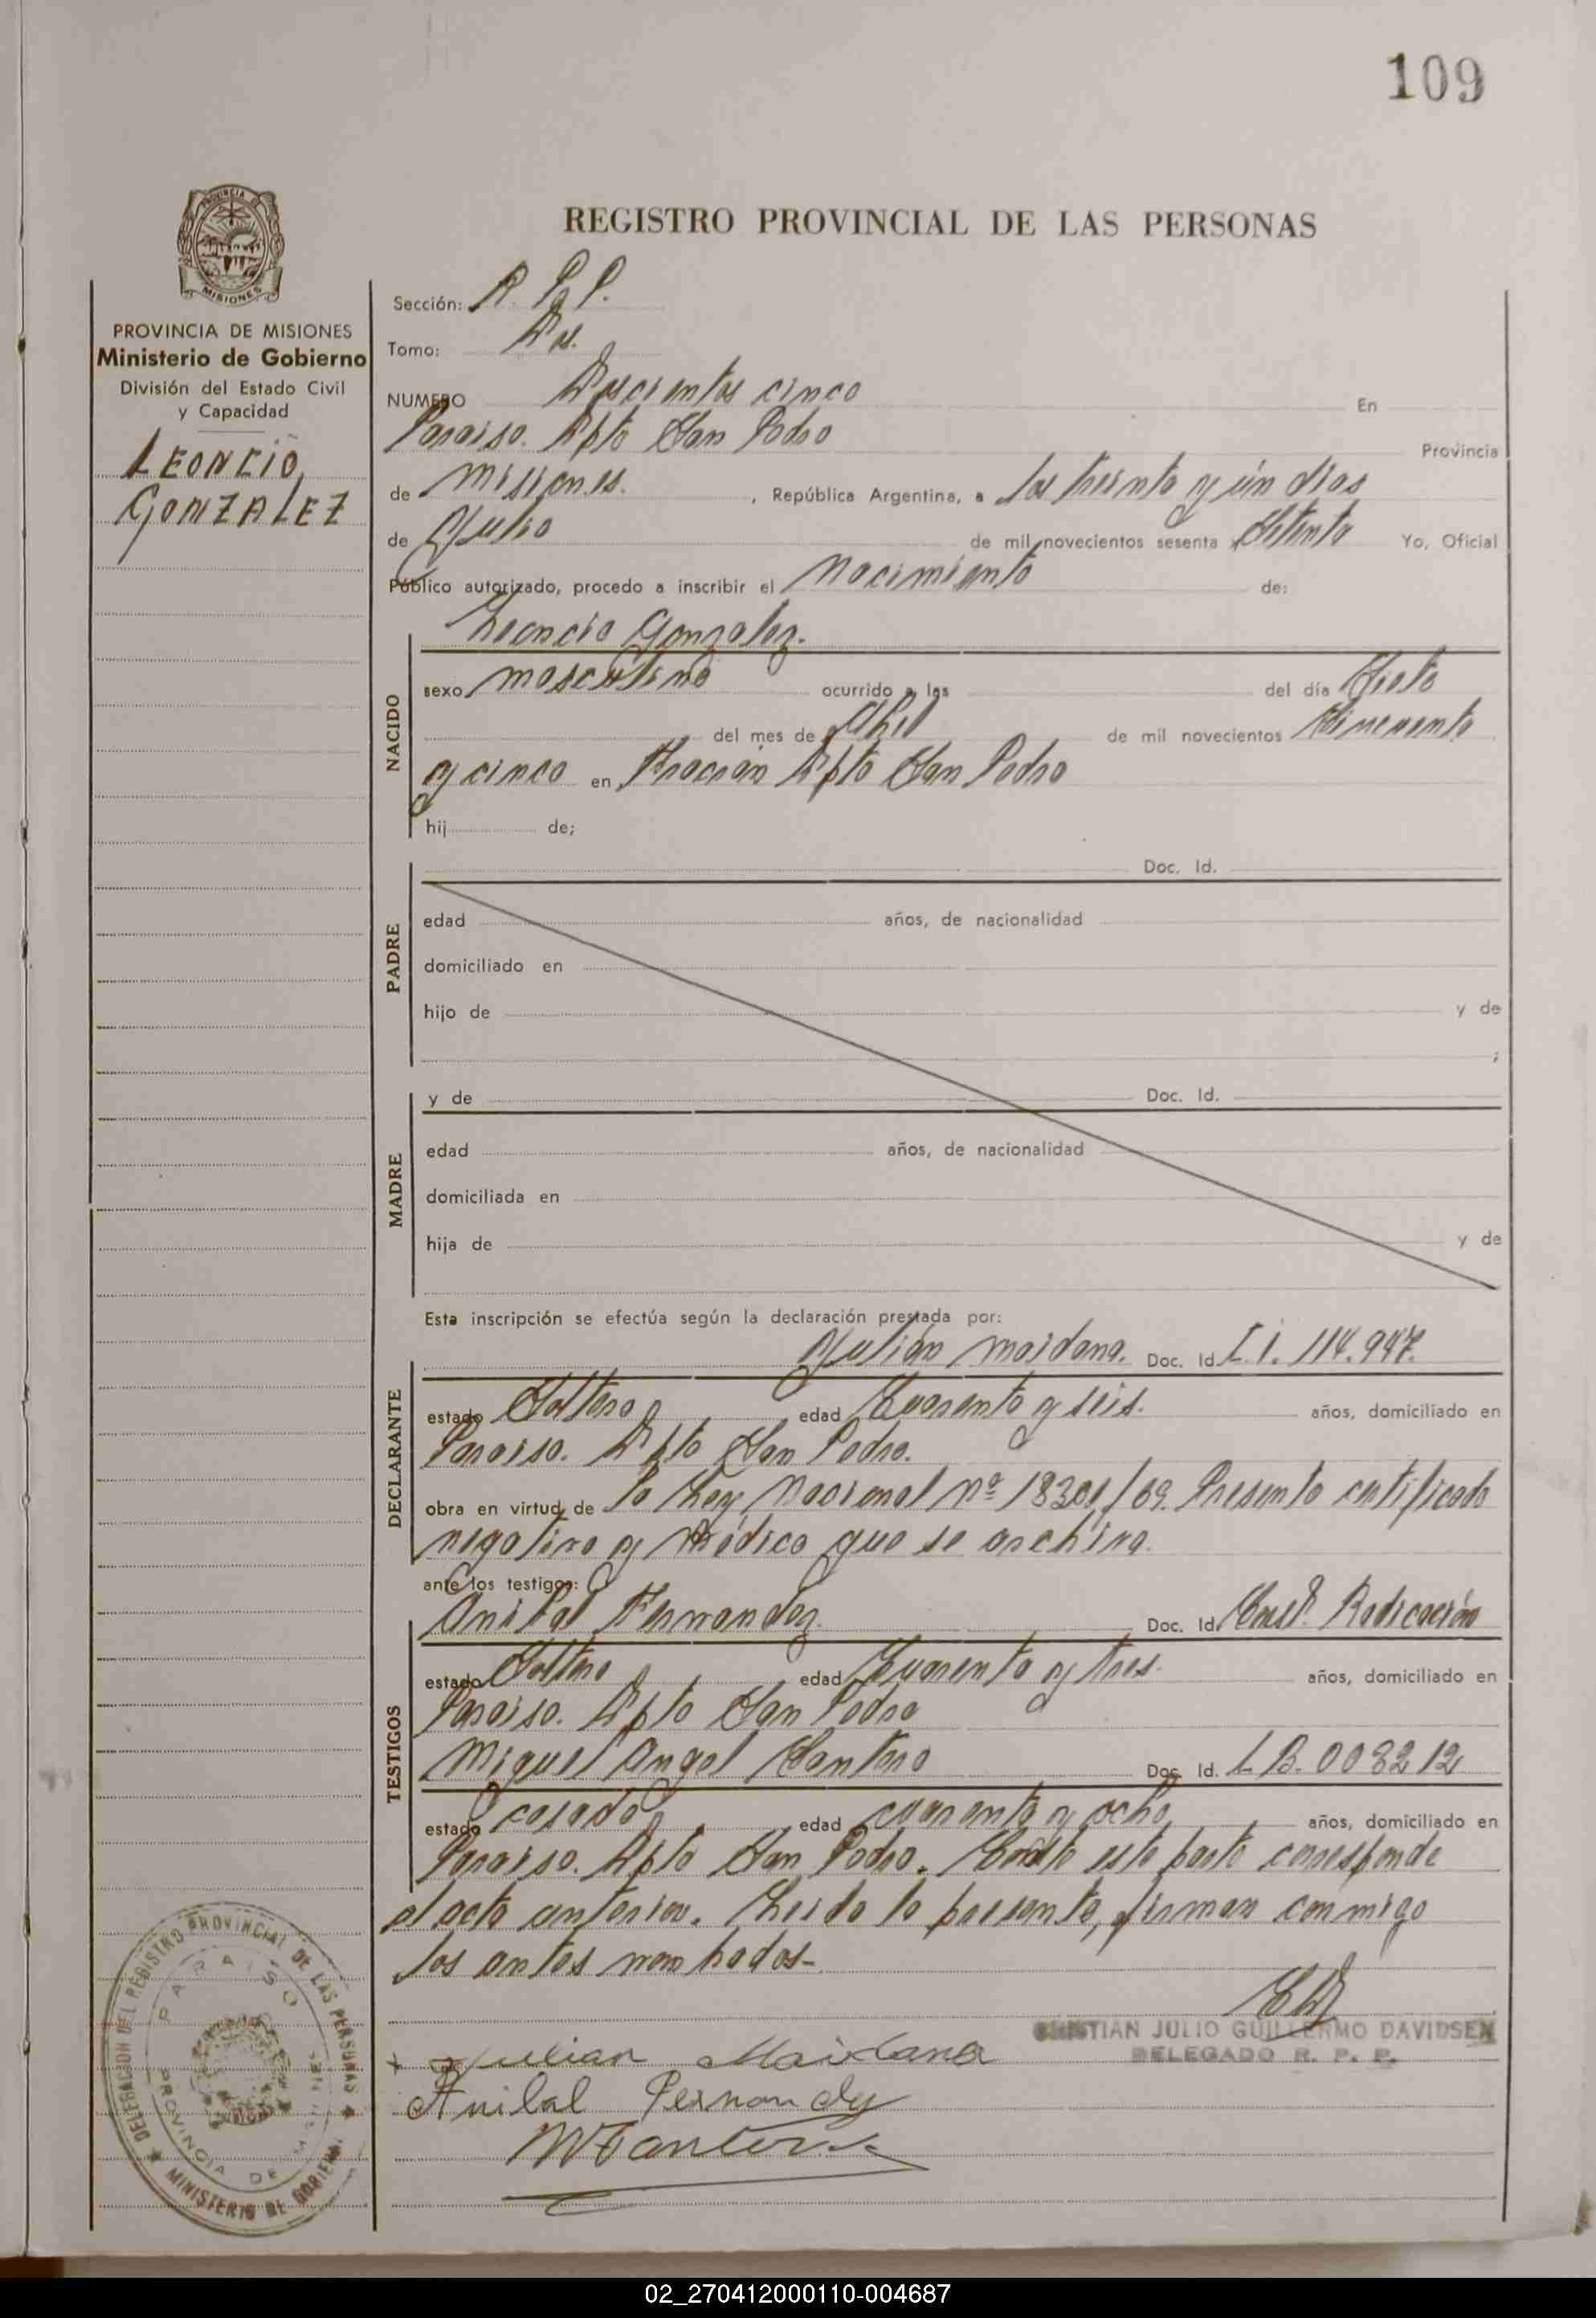 109
REGISTRO PROVINCIAL DE LAS PERSONAS
PROVINCIA DE MISIONES
Ministerio de Gobierno
División del Estado Civil
y Capacidad
LEONCIO
GONZALEZ
Sección: R. P. P.
Tomo: Dos.
NUMERO Doscientos cinco En
Paraiso. Dpto San Pedro Provincia
de Misiones. , República Argentina, a los treinta y ún dias
de Julio de mil novecientos sesenta y Setenta Yo, Oficial
Público autorizado, procedo a inscribir el Nacimiento de:
Leoncio Gonzalez.
NACIDO
sexo masculino ocurrido a las del día Siete
del mes de Abril de mil novecientos Cincuenta
y cinco en Fracrán Dpto San Pedro
hij de;
PADRE
Doc. Id.
edad años, de nacionalidad
domiciliado en
hijo de y de
;
MADRE
y de Doc. Id.
edad años, de nacionalidad
domiciliada en
hija de y de
Esta inscripción se efectúa según la declaración prestada por:
DECLARANTE
Julián Maidana. Doc. Id. C.I. 114.947.
estado Soltero edad Cuarenta y seis. años, domiciliado en
Paraiso. Dpto San Pedro.
obra en virtud de la Ley Nacional nº 18301/69. Presenta certificado
negativo y médico que se archiva.
ante los testigos:
TESTIGOS
Anibal Fernandez. Doc. Id. Const. Radicación
estado Soltero edad Cuarenta y tres. años, domiciliado en
Paraiso. Dpto San Pedro
Miguel Angel Santoro Doc. Id. L.B. 0082212
estado casado edad cuarenta y ocho años, domiciliado en
Paraiso. Dpto San Pedro. este parte corresponde
al acta anterior. Leida la presente, firman conmigo
los antes nombrados-
CRISTIAN JULIO GUILLERMO DAVIDSEN
DELEGADO R. P. P.
+ Julian Maidana
Anibal Fernandez
DELEGACION DEL REGISTRO PROVINCIAL DE LAS PERSONAS
PARAISO
PROVINCIA DE MISIONES
MINISTERIO DE GOBIERNO
02_270412000110-004687